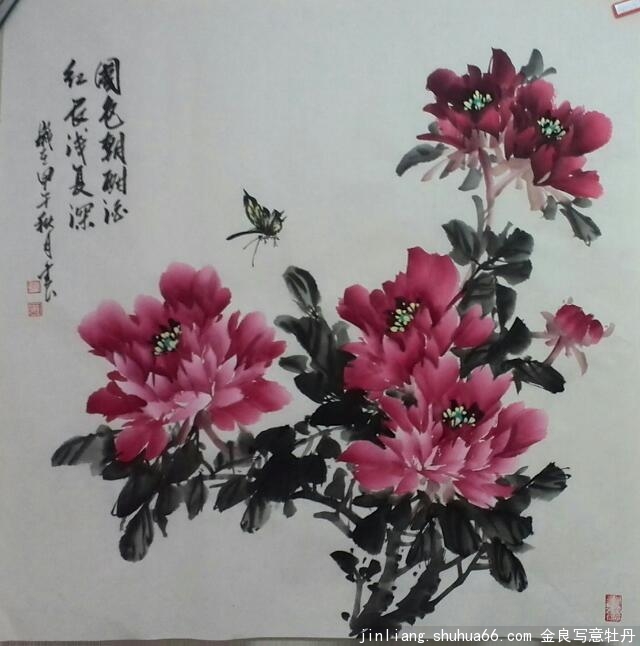 國色朝酣酒
红衣浅复深
歲在甲午秋月
jinliang.shuhua66.com 金良写意牡丹